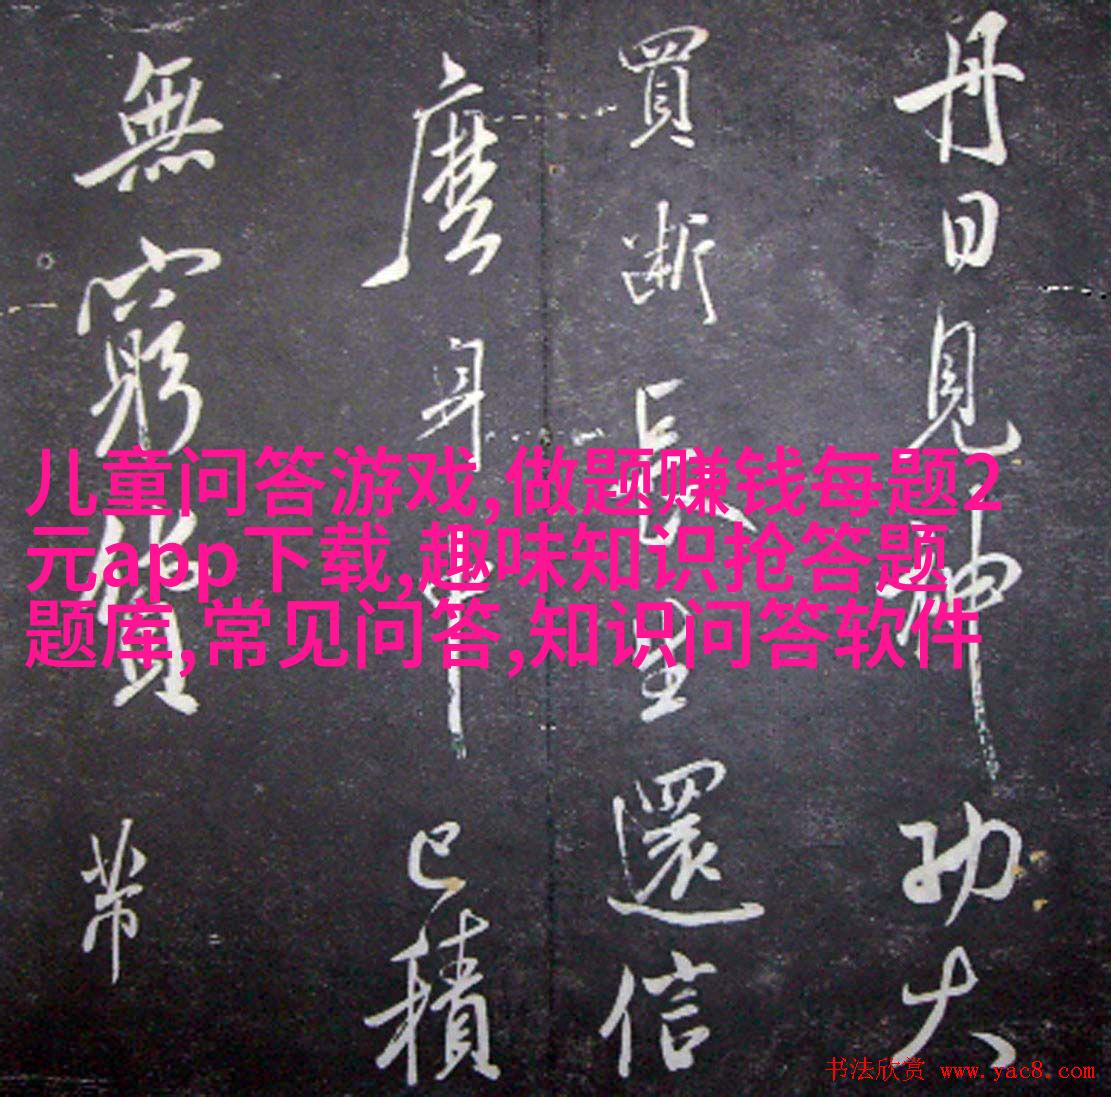 丹日見神功大
買断長生還信
麽身中已積
無窮貨带
儿童问答游戏,做题赚钱每题2
元app下载,趣味知识抢答题
题库,常见问答,知识问答软件
书法欣赏 www.yac8.com